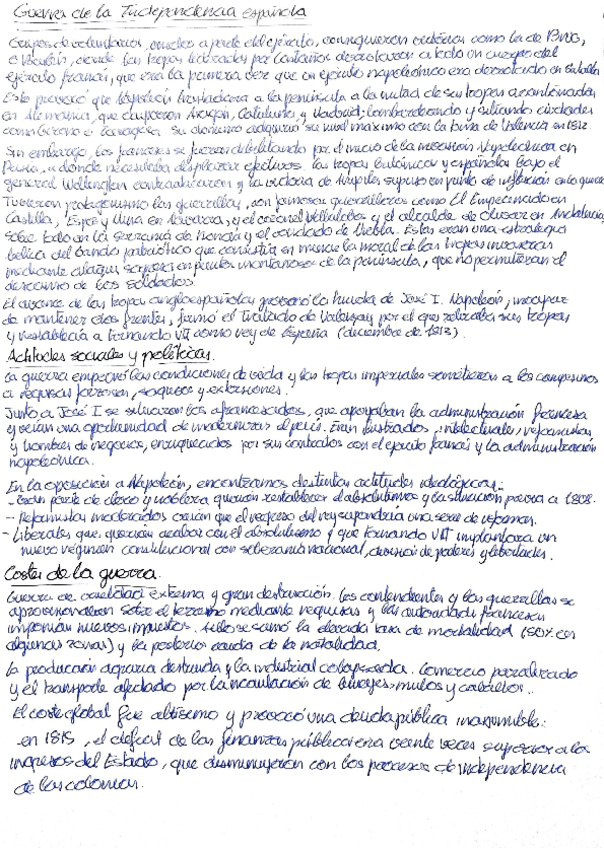 Guerra de la Independencia española
Grupos de voluntarios, unidos a parte del ejército, consiguieron victorias como la de Bruc,
o Bailén, donde las tropas lideradas por Castaños derrotaron a todo un cuerpo del
ejército francés, que era la primera vez que un ejército napoleónico era derrotado en batalla
Esto provocó que Napoleón trasladara a la península a la mitad de sus tropas acantonadas
en Alemania, que ocuparon Aragón, Cataluña y Madrid; bombardeando y sitiando ciudades
como Gerona o Zaragoza. Su dominio adquirió su nivel máximo con la toma de Valencia en 1812.
Sin embargo, los franceses se fueron debilitando por el inicio de la invasión Napoleónica en
Rusia, a donde necesitaba desplazar efectivos. Las tropas británicas y españolas bajo el
general Wellington contraatacaron y la victoria de Arapiles supuso un punto de inflexión en la guerra
Tuvieron protagonismo las guerrillas, con famosos guerrilleros como El Empecinado en
Castilla, Espoz y Mina en Navarra, y el coronel Villalobos y el alcalde de Otivar en Andalucía,
sobre todo en la Serranía de Ronda y el condado de Niebla. Estas eran una estrategia
bélica del bando patriótico que consistía en minar la moral de las tropas invasoras
mediante ataques sorpresa en puntos montañosos de la península, que no permitieran el
descanso de los soldados.
El avance de las tropas angloespañolas provocó la huida de José I. Napoleón, incapaz
de mantener dos frentes, firmó el Tratado de Valençay por el que retiraba sus tropas
y restablecía a Fernando VII como rey de España (diciembre de 1813).
Actitudes sociales y políticas.
La guerra empeoró las condiciones de vida y las tropas imperiales sometieron a los campesinos
a requisas forzosas, saqueos y extorsiones.
Junto a José I se situaron los afrancesados, que apoyaban la administración francesa
y veían una oportunidad de modernizar el país. Eran ilustrados, intelectuales, reformistas
y hombres de negocios, enriquecidos por sus contratos con el ejército francés y la administración
napoleónica.
En la oposición a Napoleón, encontramos distintas actitudes ideológicas:
- Gran parte de clero y nobleza querían restablecer el absolutismo y la situación previa a 1808.
- Reformistas moderados creían que el regreso del rey supondría una serie de reformas.
- Liberales que querían acabar con el absolutismo y que Fernando VII implantara un
nuevo régimen constitucional con soberanía nacional, división de poderes y libertades.
Costes de la guerra.
Guerra de crueldad extrema y gran destrucción. Los contendientes y las guerrillas se
aprovisionaban sobre el terreno mediante requisas y las autoridades francesas
imponían nuevos impuestos. A ello se sumó la elevada tasa de mortalidad (50% en
algunas zonas) y la posterior caída de la natalidad.
La producción agraria destruida y la industrial colapsada. Comercio paralizado
y el transporte afectado por la incautación de bueyes, mulos y caballos.
El coste global fue altísimo y provocó una deuda pública inasumible:
en 1815, el déficit de las finanzas públicas era veinte veces superior a los
ingresos del Estado, que disminuyeron con los procesos de independencia
de las colonias.